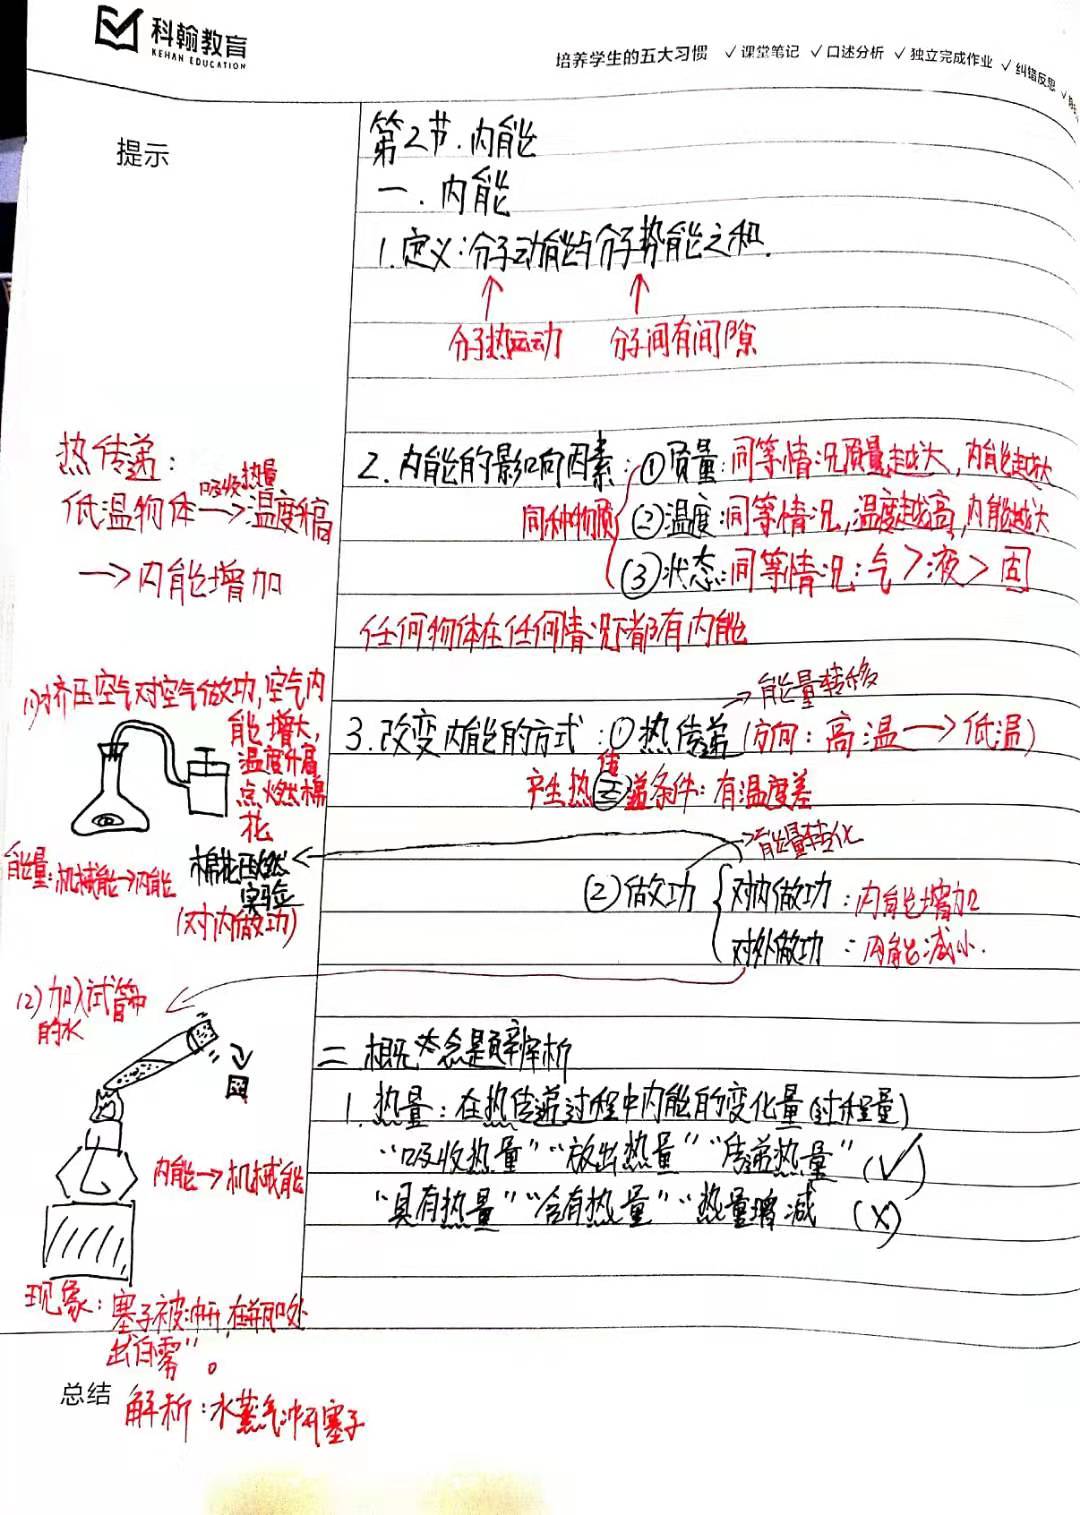 科翰教育
KEHAN EDUCATION
培养学生的五大习惯 √课堂笔记 √口述分析 √独立完成作业 √纠错反思 √
提示
第2节.内能
一.内能
1.定义:分子动能与分子势能之和.
分子热运动 分子间有间隙
热传递:
低温物体→温度升高
吸收热量
→内能增加
2.内能的影响因素:①质量:同等情况质量越大,内能越大
同种物质 ②温度:同等情况,温度越高,内能越大
③状态:同等情况:气>液>固
任何物体在任何情况下都有内能
→能量转移
3.改变内能的方式:①热传递(方向:高温→低温)
产生热传递条件:有温度差
(1)挤压空气对空气做功,空气内
能增大,
温度升高
点燃棉
花
能量:机械能→内能
棉花压燃
实验
(对内做功)
→能量转化
②做功 对内做功:内能增加
对外做功:内能减小.
(2)加入试管中
的水
内能→机械能
现象:塞子被冲开,在瓶口处
出"白雾"。
二.概念是题辨析
1.热量:在热传递过程中内能的变化量(过程量)
"吸收热量""放出热量""传递热量"(√)
"具有热量""含有热量""热量增减"(×)
总结
解析:水蒸气冲开塞子